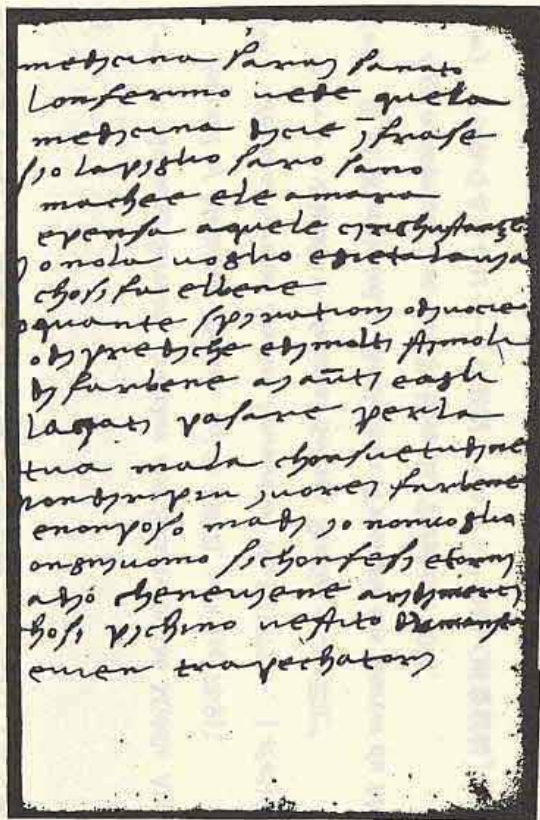 medicina sarai sanato
lonfermo vede quela
medicina dicie j̄frase
sio lapiglio saro sano
machee ele amara
epensa aquele circhustanzie
io nola voglio egietalavia
chosi fa elbene
oquante spirationi odivocie
odiprediche edimolti stimoli
di farbene ai aūti eagli
lasati pasare perla
tua mala chonsuetudine
nondiripiu ivorei farbene
enonposo madi io nonvoglio
ongniuomo sichonfesi etorni
adio cheneviene
chosi pichino vestito
evien trapechatori